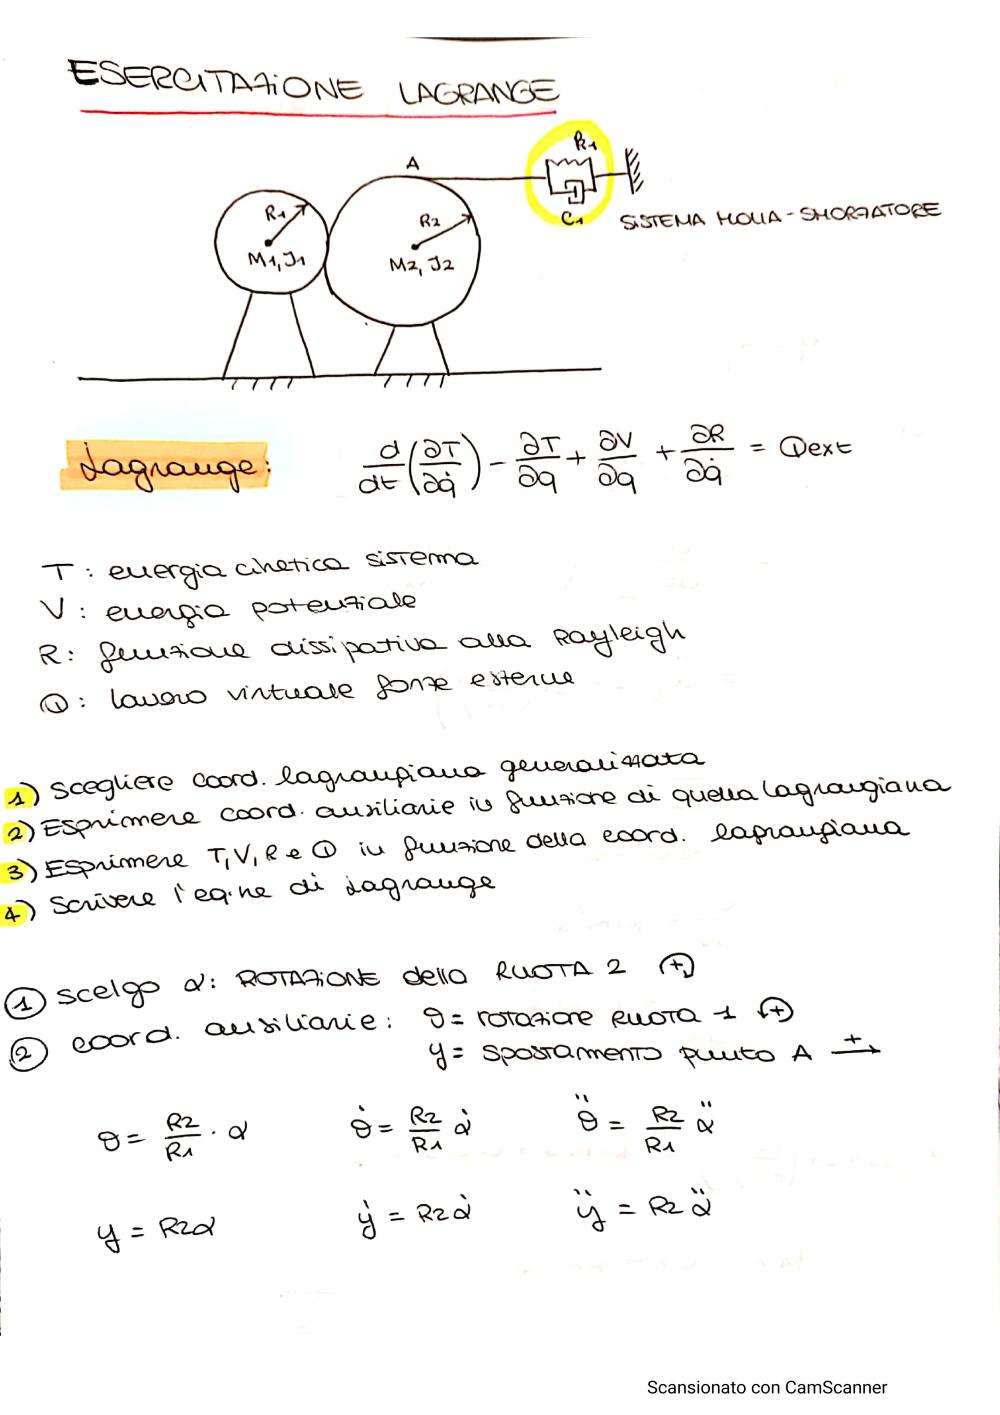 ESERCITAZIONE LAGRANGE
A
k1
R1
R2
C1
SISTEMA MOLLA-SMORZATORE
M1, J1
M2, J2
Lagrange: d/dt (∂T/∂q̇) - ∂T/∂q + ∂V/∂q + ∂R/∂q̇ = Qext
T: energia cinetica sistema
V: energia potenziale
R: funzione dissipativa alla Rayleigh
Q: lavoro virtuale forze esterne
1) Scegliere coord. lagrangiana generalizzata
2) Esprimere coord. ausiliarie in funzione di quella lagrangiana
3) Esprimere T, V, R e Q in funzione della coord. lagrangiana
4) Scrivere l'eq.ne di Lagrange
1 scelgo α: ROTAZIONE della RUOTA 2 (+)
2 coord. ausiliarie: θ = rotazione RUOTA 1 (+)
y = spostamento punto A +→
θ = R2/R1 · α θ̇ = R2/R1 α̇ θ̈ = R2/R1 α̈
y = R2α ẏ = R2α̇ ÿ = R2 α̈
Scansionato con CamScanner